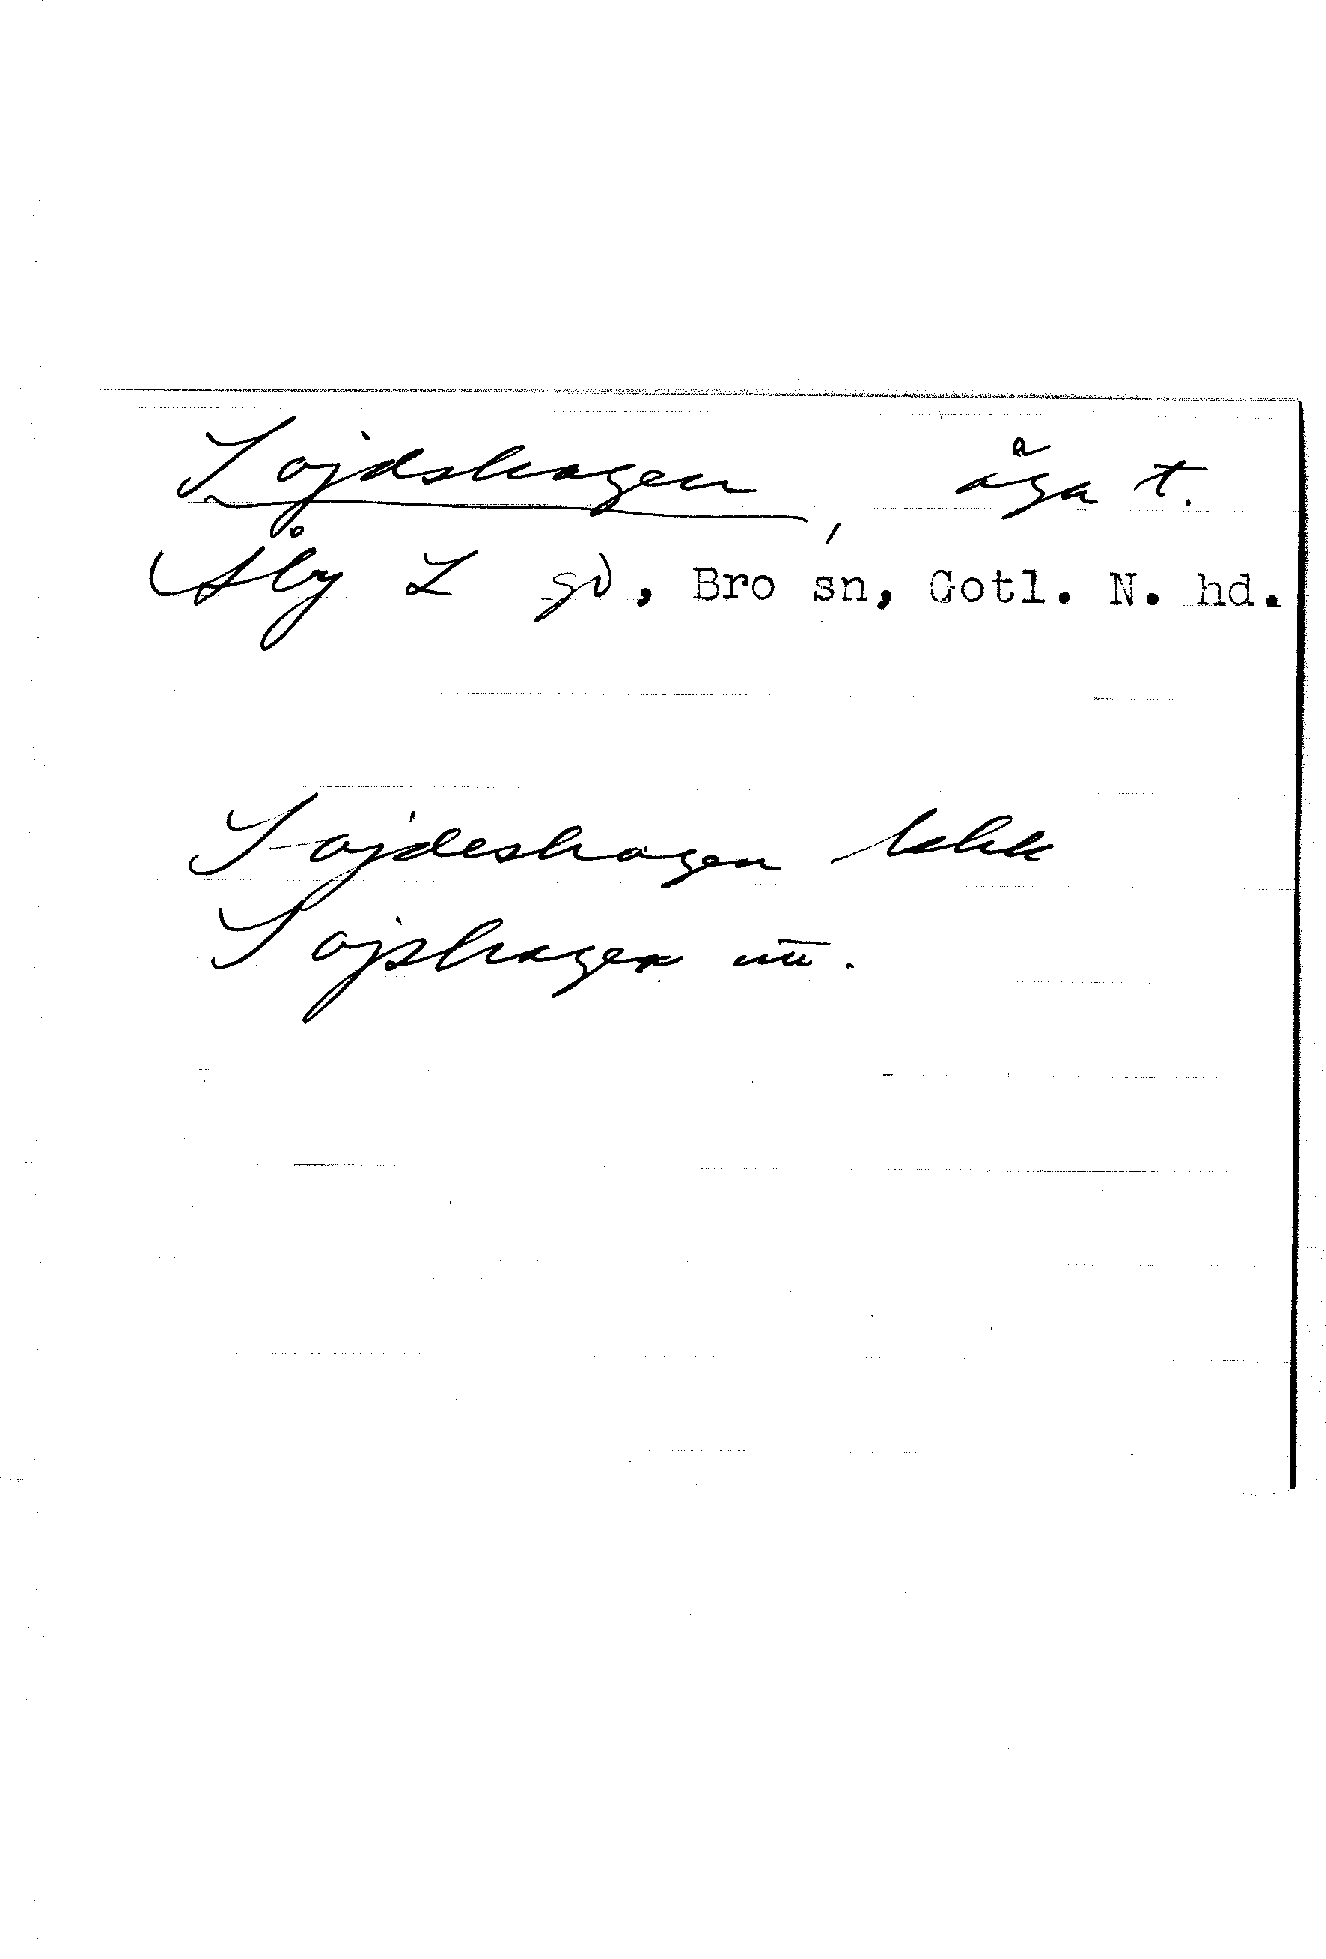 Sojdshagen, äga t.
Åby L gd, Bro sn, Gotl. N. hd.
Sojdeshagen lskk
Sojshagen utt.